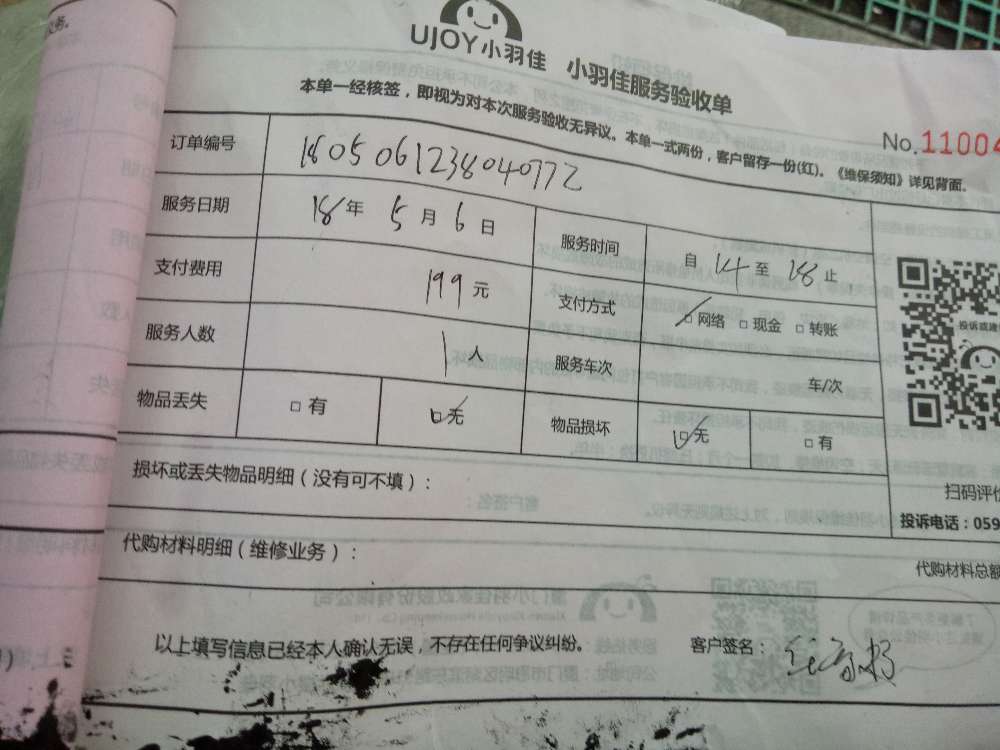 务。
UJOY小羽佳 小羽佳服务验收单
本单一经核签，即视为对本次服务验收无异议。本单一式两份，客户留存一份(红)。《维保须知》详见背面。
No.11004
订单编号 1805061238040772
服务日期 18年 5月 6日 服务时间 自 14 至 18 止
支付费用 199元 支付方式 □网络 □现金 □转账
投诉或建
服务人数 1人 服务车次 车/次
物品丢失 □有 □无 物品损坏 □无 □有
损坏或丢失物品明细（没有可不填）：
扫码评价
投诉电话：059
代购材料明细（维修业务）：
代购材料总额
以上填写信息已经本人确认无误，不存在任何争议纠纷。 客户签名：